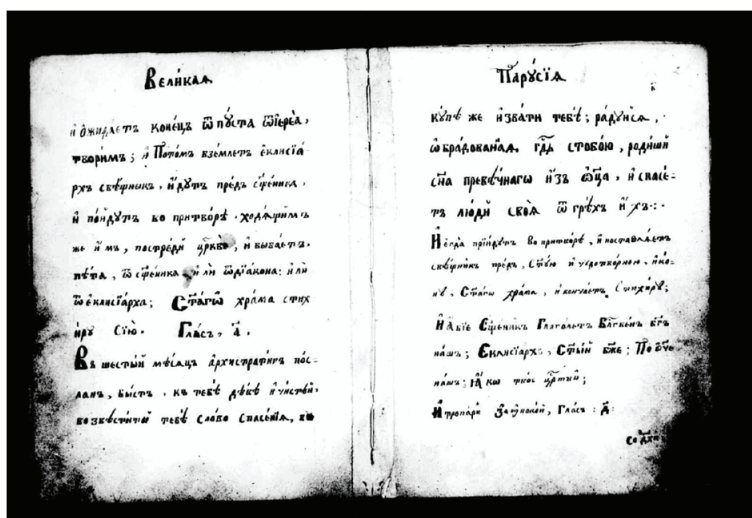 Вели́кая
и҆ ѡ҆жида́етъ коне́цъ ѿпꙋ́ста ѿ і҆ере́а,
творимъ; и҆ Пото́мъ вземлетъ е҆клисїа́
рхъ свѣ́щникъ, и҆ и҆дꙋ́тъ пре́дъ сщ҃е́ника,
и҆ по́йдꙋтъ во притво́ръ. ходѧ́щимъ
же и҆́мъ, посреди̑ цр҃кве, и҆ быва́етъ
пѣ́та, ѿ сщ҃е́ника и҆лѝ ѿ дїа́кона: и҆лѝ
ѿ е҆клисїа́рха; Ст҃а́гѡ хра́ма стих
и́рꙋ Сїю̀. Гла́съ, а҃.
Въ шесты́й мѣ́сѧцъ а҆рхистрати́гъ пос
ланъ, бы́сть. къ тебѣ̀ дѣ́вѣ и҆ чи́стѣй.
возвѣсти́ти тебѣ̀ сло́во спасе́нїѧ, въ
Парꙋ́сїѧ
кꙋ́пѣ же и҆ зва́ти тебѣ̀; ра́дꙋйсѧ,
ѡ҆бра́дованнаѧ. гдⷭ҇ь стобо́ю, роди́ши
сн҃а превѣ́чнаго и҆зъ ѻ҆ц҃а, и҆ спасе́
тъ лю́ди своѧ̑ ѿ грѣ́хъ и҆́хъ:·
И҆ є҆гда̀ прїи́дꙋтъ во притво́ръ, и҆ поставлѧ́етъ
свѣ́щникъ предъ, Ст҃ꙋ́ю и҆ чꙋдотво́рною, и҆ко́
нꙋ, Ст҃а́гѡ хра́ма, и҆ конча́етъ Стихи́рꙋ;
И҆ а҆́бїе Сщ҃е́никъ Глаго́летъ Бл҃гве́нъ бг҃ъ
на́шъ; Е҆клисїа́рхъ, Ст҃ы́й бж҃е: По ѻ҆́ч҃е
на́шъ: Ꙗ҆́кѡ твоѐ црⷭ҇тво;
И҆ тропари̑ Заꙋпоко́й, Гла́съ: д҃: